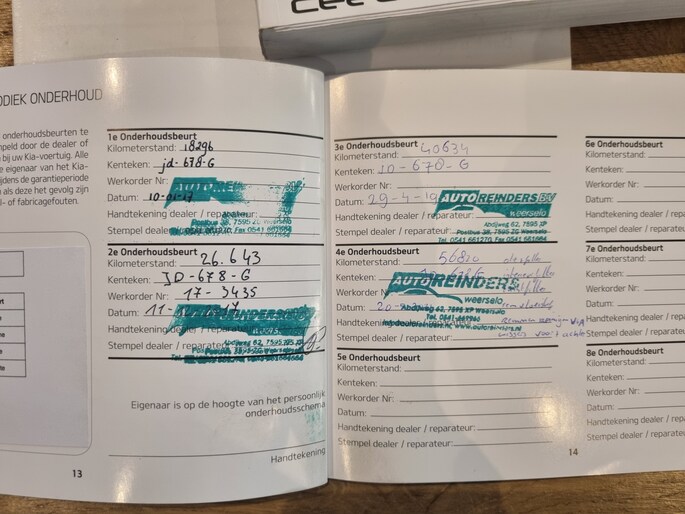 ODIEK ONDERHOUD
onderhoudsbeurten te
mpeld door de dealer of
bij uw Kia-voertuig. Alle
e eigenaar van het Kia-
ijdens de garantieperiode
als deze het gevolg zijn
- of fabricagefouten.
1e Onderhoudsbeurt
Kilometerstand: 18296
Kenteken: jd-678-G
Werkorder Nr:
Datum: 10-01-17
Handtekening dealer / reparateur:
Stempel dealer
2e Onderhoudsbeurt
Kilometerstand: 26.643
Kenteken: JD-678-G
Werkorder Nr: 17-3435
Datum: 11-
Handtekening dealer / reparateur
Stempel dealer / reparateur
Eigenaar is op de hoogte van het persoonlijk
onderhoudsschema
Handtekening
13
3e Onderhoudsbeurt
Kilometerstand: 40634
Kenteken: JD-678-G
Werkorder Nr:
Datum: 29-4-19
Handtekening dealer / reparateur:
Stempel dealer / reparateur:
AUTOREINDERS BV
weerselo
Abdijweg 62, 7595 XP
Postbus 38, 7595 ZG Weerselo
Tel. 0541 661270, Fax 0541 661664
4e Onderhoudsbeurt
Kilometerstand: 56820
Kenteken:
Werkorder Nr:
Datum: 20-
Handtekening
Stempel dealer / reparateur:
AUTOREINDERS
weerselo
Abdijweg 62, 7595 XP Weerselo
5e Onderhoudsbeurt
Kilometerstand:
Kenteken:
Werkorder Nr:
Datum:
Handtekening dealer / reparateur:
Stempel dealer / reparateur:
14
6e Onderhoudsbeurt
Kilometerstand:
Kenteken:
Werkorder Nr:
Datum:
Handtekening dealer / reparate
Stempel dealer / reparateu
7e Onderhoudsbeurt
Kilometerstand:
Kenteken:
Werkorder Nr:
Datum:
Handtekening dealer / repara
Stempel dealer / reparateu
8e Onderhoudsbeurt
Kilometerstand:
Kenteken:
Werkorder Nr:
Datum:
Handtekening dealer / repara
Stempel dealer / repara